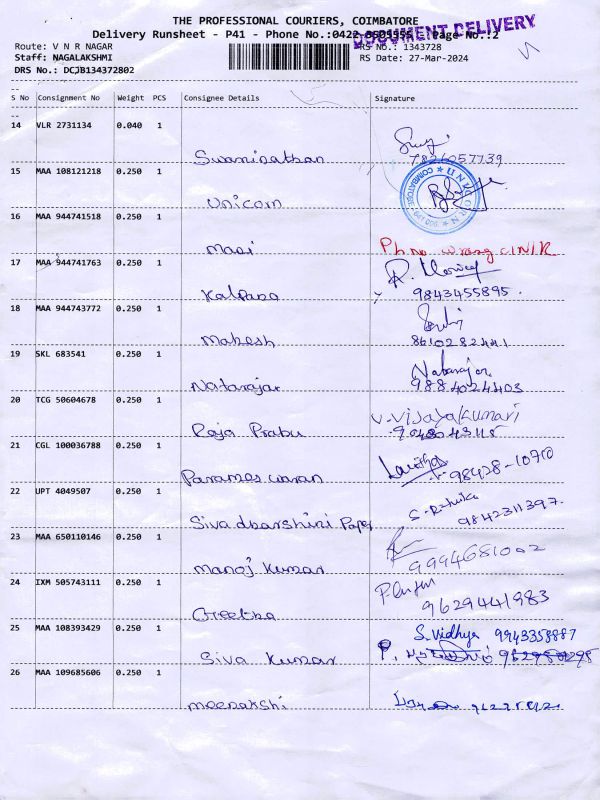 THE PROFESSIONAL COURIERS, COIMBATORE
Delivery Runsheet - P41 - Phone No.:0422 Page No.:2
DOCUMENT DELIVERY
Route: V N R NAGAR RS No.: 1343728
Staff: NAGALAKSHMI RS Date: 27-Mar-2024
DRS No.: DCJB134372802
S No Consignment No Weight PCS Consignee Details Signature
14 VLR 2731134 0.040 1
Swaminathan 7826057739
15 MAA 108121218 0.250 1
Unicorn
UNICORN COIMBATORE
16 MAA 944741518 0.250 1
Mani Ph.No wrong C/N/R
17 MAA 944741763 0.250 1
Kalpana 9843455895.
18 MAA 944743772 0.250 1
Mahesh 8610282441
19 SKL 683541 0.250 1 Natarajan
Natarajar 9884024403
20 TCG 50604678 0.250 1 V. Vijayakumari
Raja Prabu
21 CGL 100036788 0.250 1
Parameswaran 98428-10710
22 UPT 4049507 0.250 1
Siva dharshini Paper 9842311397.
23 MAA 650110146 0.250 1
Manoj Kumar 9994681002
24 IXM 505743111 0.250 1
Geetha 9629441983
25 MAA 108393429 0.250 1 S. Vidhya 9943358887
Siva Kumar
26 MAA 109685606 0.250 1
Meenakshi